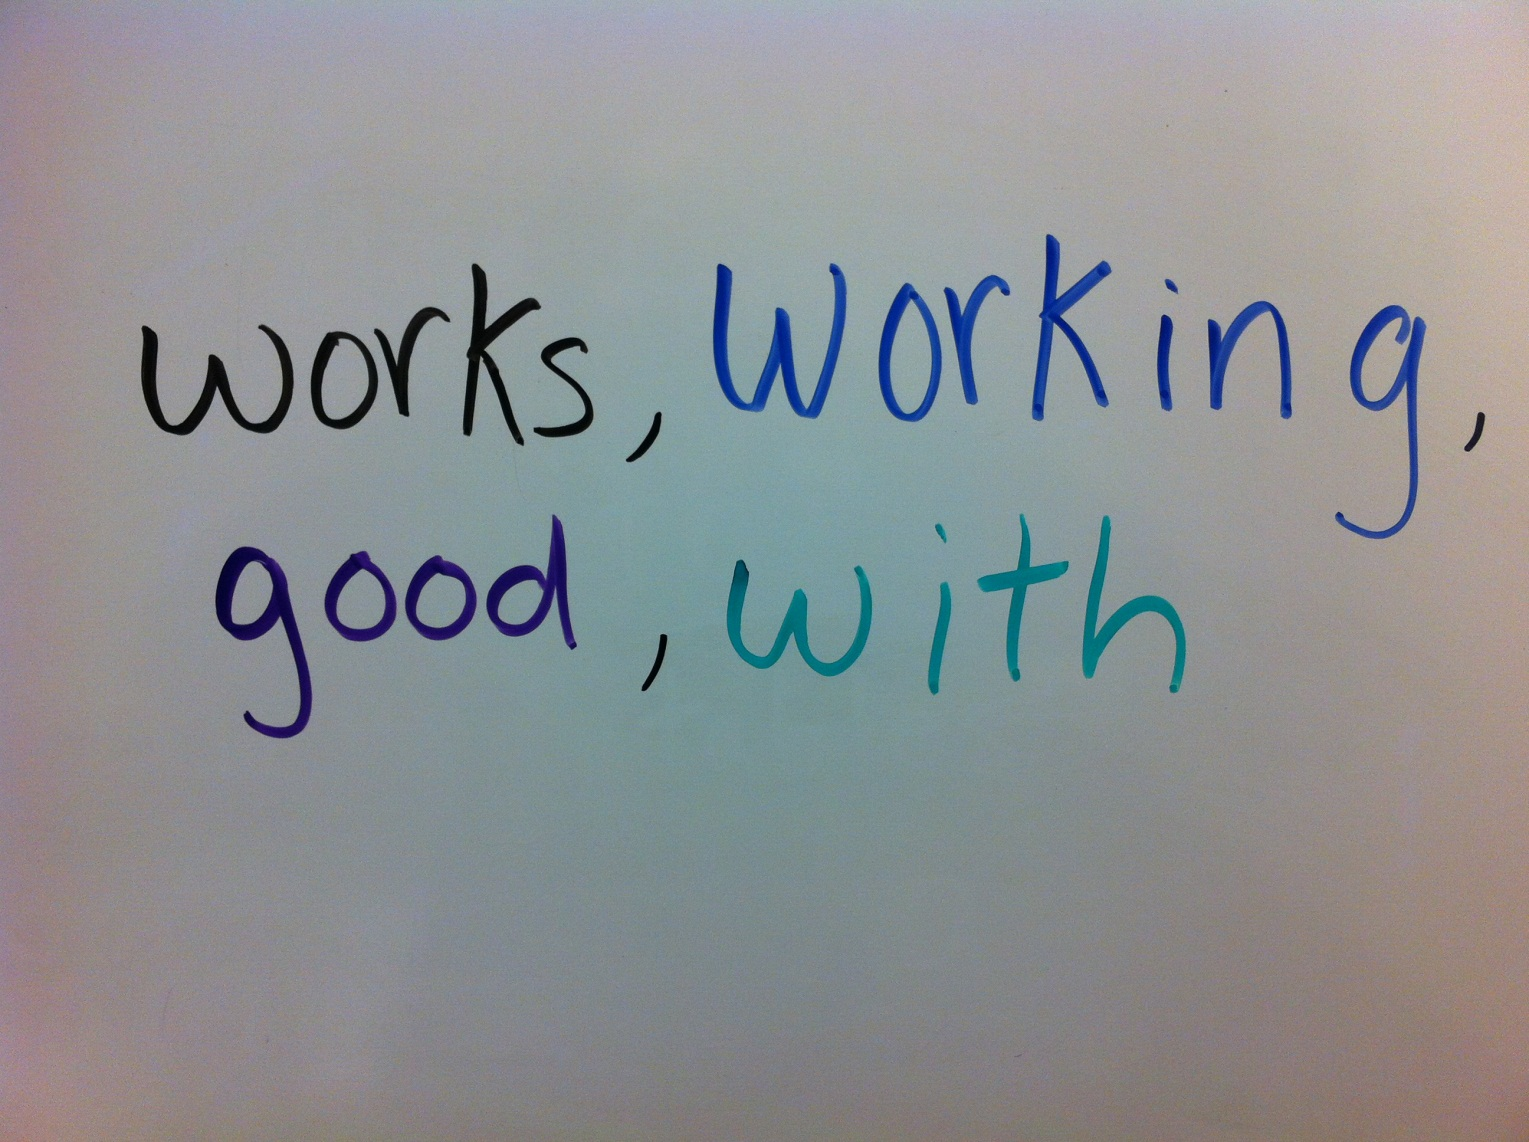 works, working,
good, with